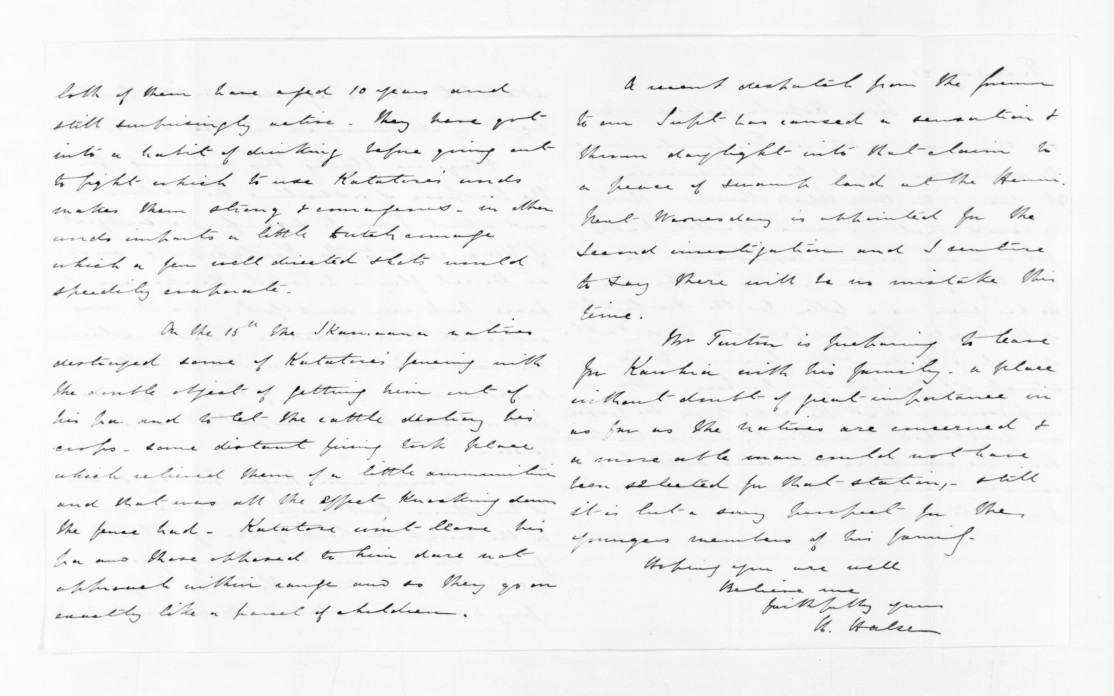 both of them have aged 10 years and
still surprisingly active - They have got
into a habit of drinking before going out
to fight which to use Katatore's words
makes them strong & courageous - in other
words imparts a little Dutch courage
which a few well directed shots would
speedily evaporate.
On the 15th the Ikamoana natives
destroyed some of Katatore's fencing with
the double object of getting him out of
his pa and to let the cattle destroy his
crops - some distant firing took place
which relieved them of a little ammunition
and that was all the effect knocking down
the fence had - Katatore won't leave his
pa and those opposed to him dare not
approach within range and so they go on
exactly like a parcel of children.
A recent despatch from the
to our Supt has caused a sensation &
thrown daylight into that claim to
a peace of swamp land at the Henui.
Next Wednesday is appointed for the
second investigation and I venture
to say there will be no mistake this
time.
Mr Turton is preparing to leave
for Kawhia with his family - a place
without doubt of great importance in
as far as the natives are concerned &
a more able man could not have
been selected for that station, - still
it is but a sorry prospect for the
younger members of his family.
Hoping you are well
Believe me
faithfully yours
H. Halse